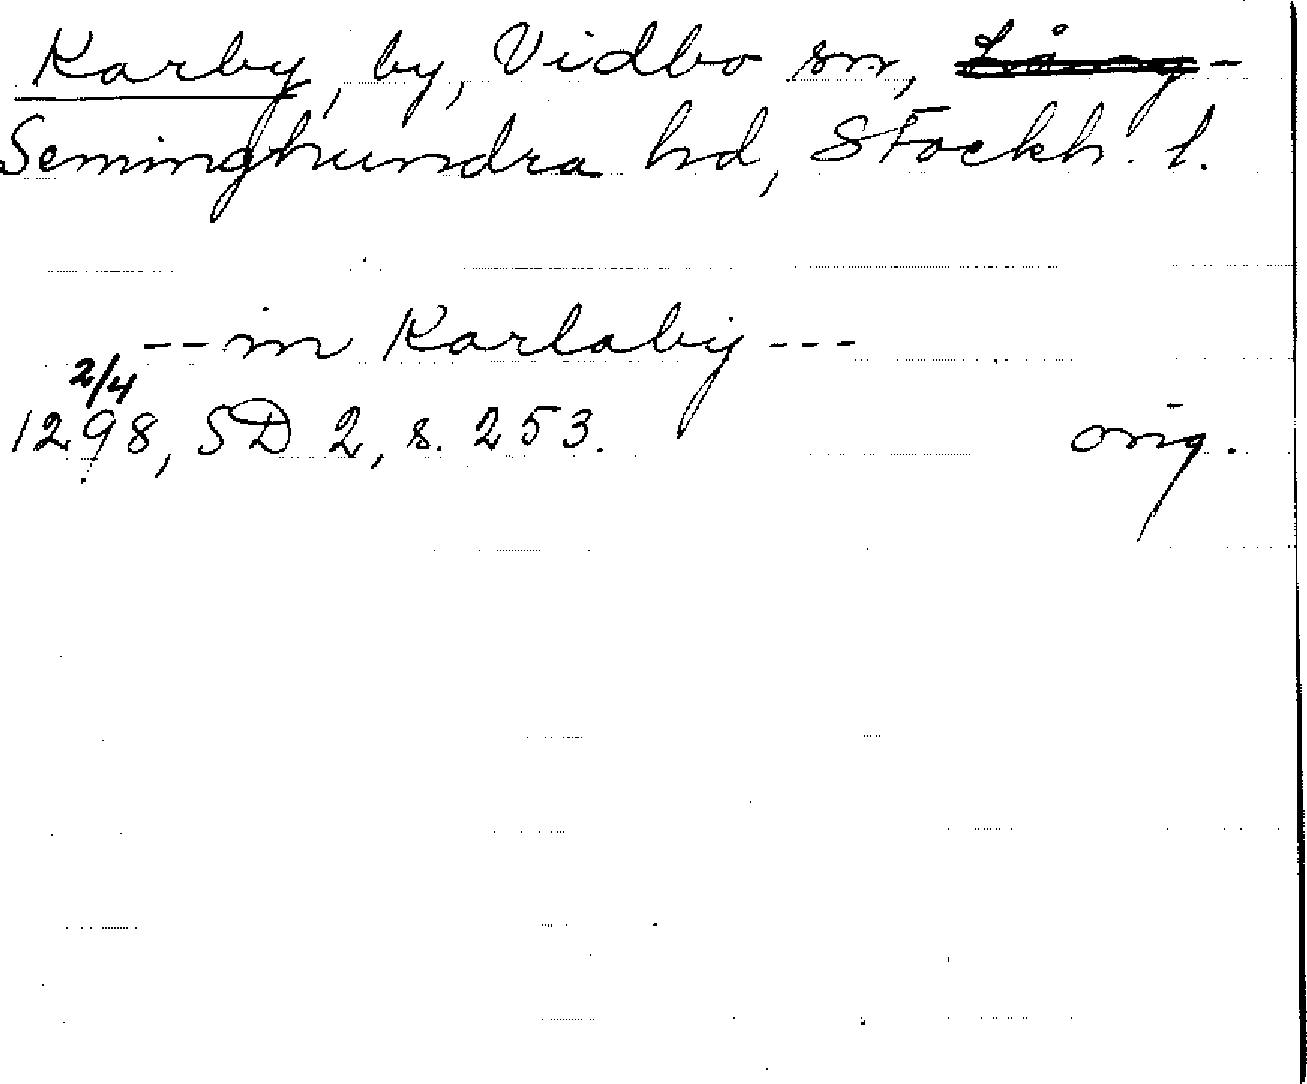 Karby, by, Vidbo sn, Lång-
Seminghundra hd, Stockh. l.
--in Karlaby---
2/4
1298, SD 2, s. 253. orig.